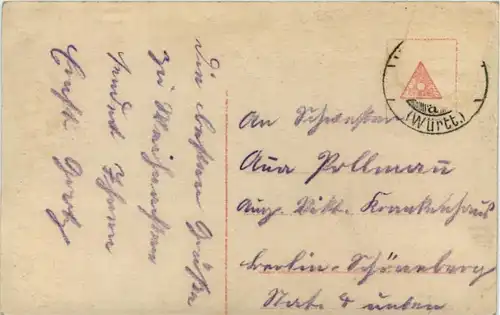 Die besten Grüße
zu Weihnachten
sendet Ihnen
Ernst
a
(Württ.)
An Schwester
Ana Pollmau
Aug. Vikt. Krankenhaus
Berlin-Schöneberg
Stat. 8 unten